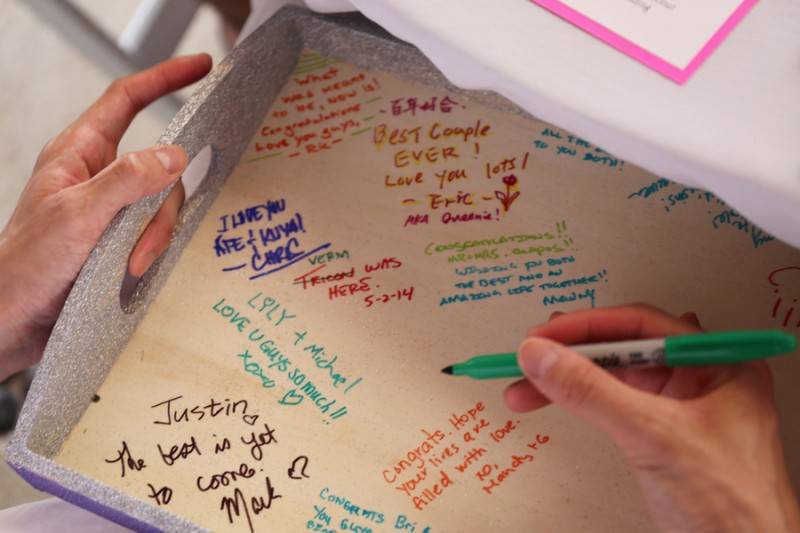 What
was meant
to be, now is!
Congratulations
Love you guys,
- Ric -
- 百年好合 -
BEST Couple
EVER!
Love you lots!
- Eric -
AKA Queenie!
ALL THE
TO YOU BOTH!
I LOVE YOU
ATE & KUYA!
- CHRC
VERM
WAS
HERE.
5-2-14
CONGRATULATIONS!!
MR+MRS.
WISHING YOU BOTH
THE BEST AND AN
AMAZING LIFE TOGETHER!!
LILY + Michael
LOVE U GUYS SO MUCH!!
XOXO
Justin
The best is yet
to come.
Mark
Congrats. Hope
your lives are
filled with love.
XO,
CONGRATS Bri &
YOU GUYS